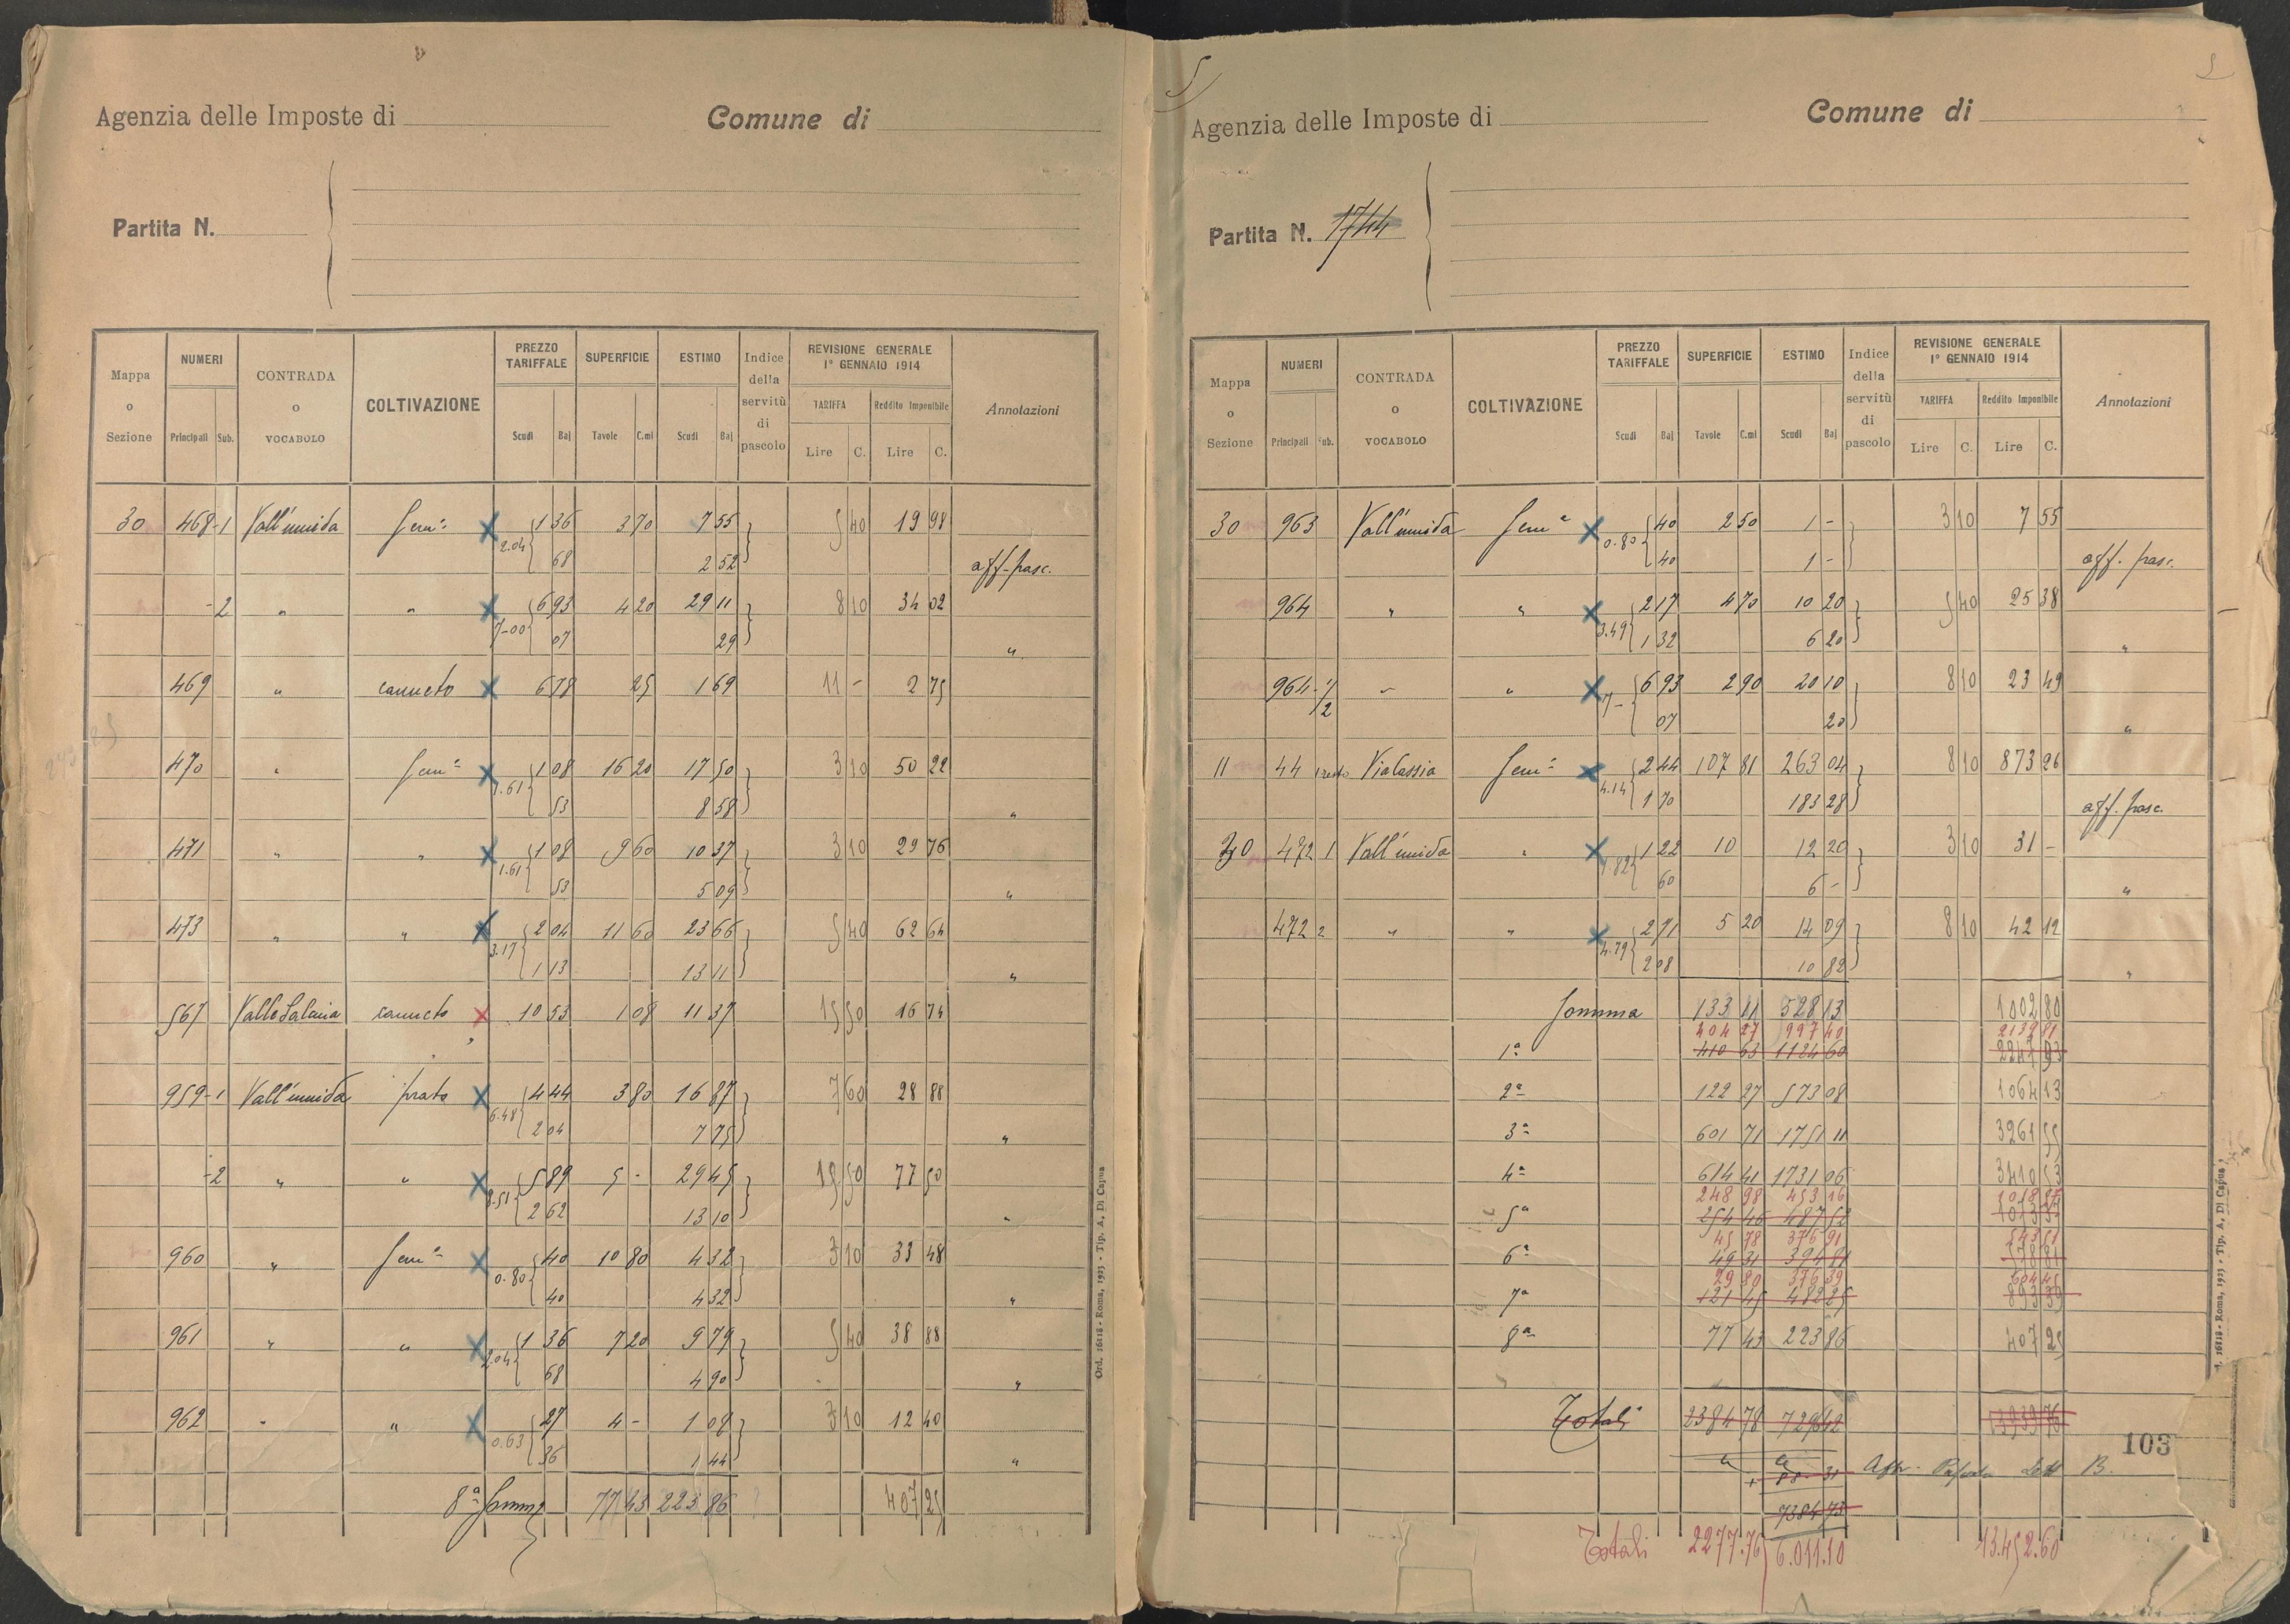 Agenzia delle Imposte di
Comune di
Partita N.
Mappa o Sezione
NUMERI
Principali Sub.
CONTRADA o VOCABOLO
COLTIVAZIONE
PREZZO TARIFFALE
Scudi Baj
SUPERFICIE
Tavole C.mi
ESTIMO
Scudi Baj
Indice della servitù di pascolo
REVISIONE GENERALE 1° GENNAIO 1914
TARIFFA
Lire C.
Reddito Imponibile
Lire C.
Annotazioni
30 468-1 Vall'umida Sem.e 1 36 3 70 7 55 5 40 19 98
2.04 68 2 52 aff. pasc.
-2 " " 6 93 4 20 29 11 8 10 34 02
7-00 07 29 "
469 " canneto 6 78 25 1 69 11 - 2 75
470 " Sem.e 1 08 16 20 17 50 3 10 50 22
1.61 53 8 58 "
471 " " 1 08 9 60 10 37 3 10 29 76
1.61 53 5 09 "
473 " " 2 04 11 60 23 66 5 40 62 64
3.17 1 13 13 11 "
567 canneto 10 53 1 08 11 37 15 50 16 74
959-1 Vall'umida prato 4 44 3 80 16 87 7 60 28 88
6.48 2 04 7 75 "
-2 " " 5 89 5 - 29 45 15 50 77 50
8.51 2 62 13 10 "
960 " Sem.e 40 10 80 4 32 3 10 33 48
0.80 40 4 32 "
961 " " 1 36 7 20 9 79 5 40 38 88
2.04 68 4 90 "
962 " " 27 4 - 1 08 3 10 12 40
0.63 36 1 44 "
8a Somma 77 43 223 86 407 25
Ord. 16118 - Roma, 1923 - Tip. A. Di Capua
5
Agenzia delle Imposte di
Comune di
Partita N. 1744
Mappa o Sezione
NUMERI
Principali Sub.
CONTRADA o VOCABOLO
COLTIVAZIONE
PREZZO TARIFFALE
Scudi Baj
SUPERFICIE
Tavole C.mi
ESTIMO
Scudi Baj
Indice della servitù di pascolo
REVISIONE GENERALE 1° GENNAIO 1914
TARIFFA
Lire C.
Reddito Imponibile
Lire C.
Annotazioni
30 963 Vall'umida Sem.e 40 2 50 1 - 3 10 7 55
0.80 40 1 - aff. pasc.
964 " " 2 17 4 70 10 20 5 40 25 38
3.49 1 32 6 20 "
964 1/2 " " 6 93 2 90 20 10 8 10 23 49
7- 07 20 "
11 44 1 resto Via Cassia Sem.e 2 44 107 81 263 04 8 10 873 26
4.14 1 70 183 28 aff. pasc.
30 472 1 Vall'umida " 1 22 10 12 20 3 10 31 -
1.82 60 6 - "
472 2 " " 2 71 5 20 14 09 8 10 42 12
4.79 2 08 10 82 "
Somma 133 11 528 13 1002 80
404 27 997 40
1a 410 63 1124 60
2a 122 27 573 08 1064 13
3a 601 71 1751 11 3261 55
4a 614 41 1731 06 3410 53
248 98 453 16
5a 254 46 487 52
45 78 376 91
6a 49 31 394 81 578 81
29 80 376 39 604 45
7a 121 45 482 25 893 39
8a 77 43 223 86 407 25
Totali 2384 78 13939 76
B.
7384 73
Totali 2277.76 6.011.10 13.452.60
103
16118 - Roma, 1923 - Tip. A. Di Capua